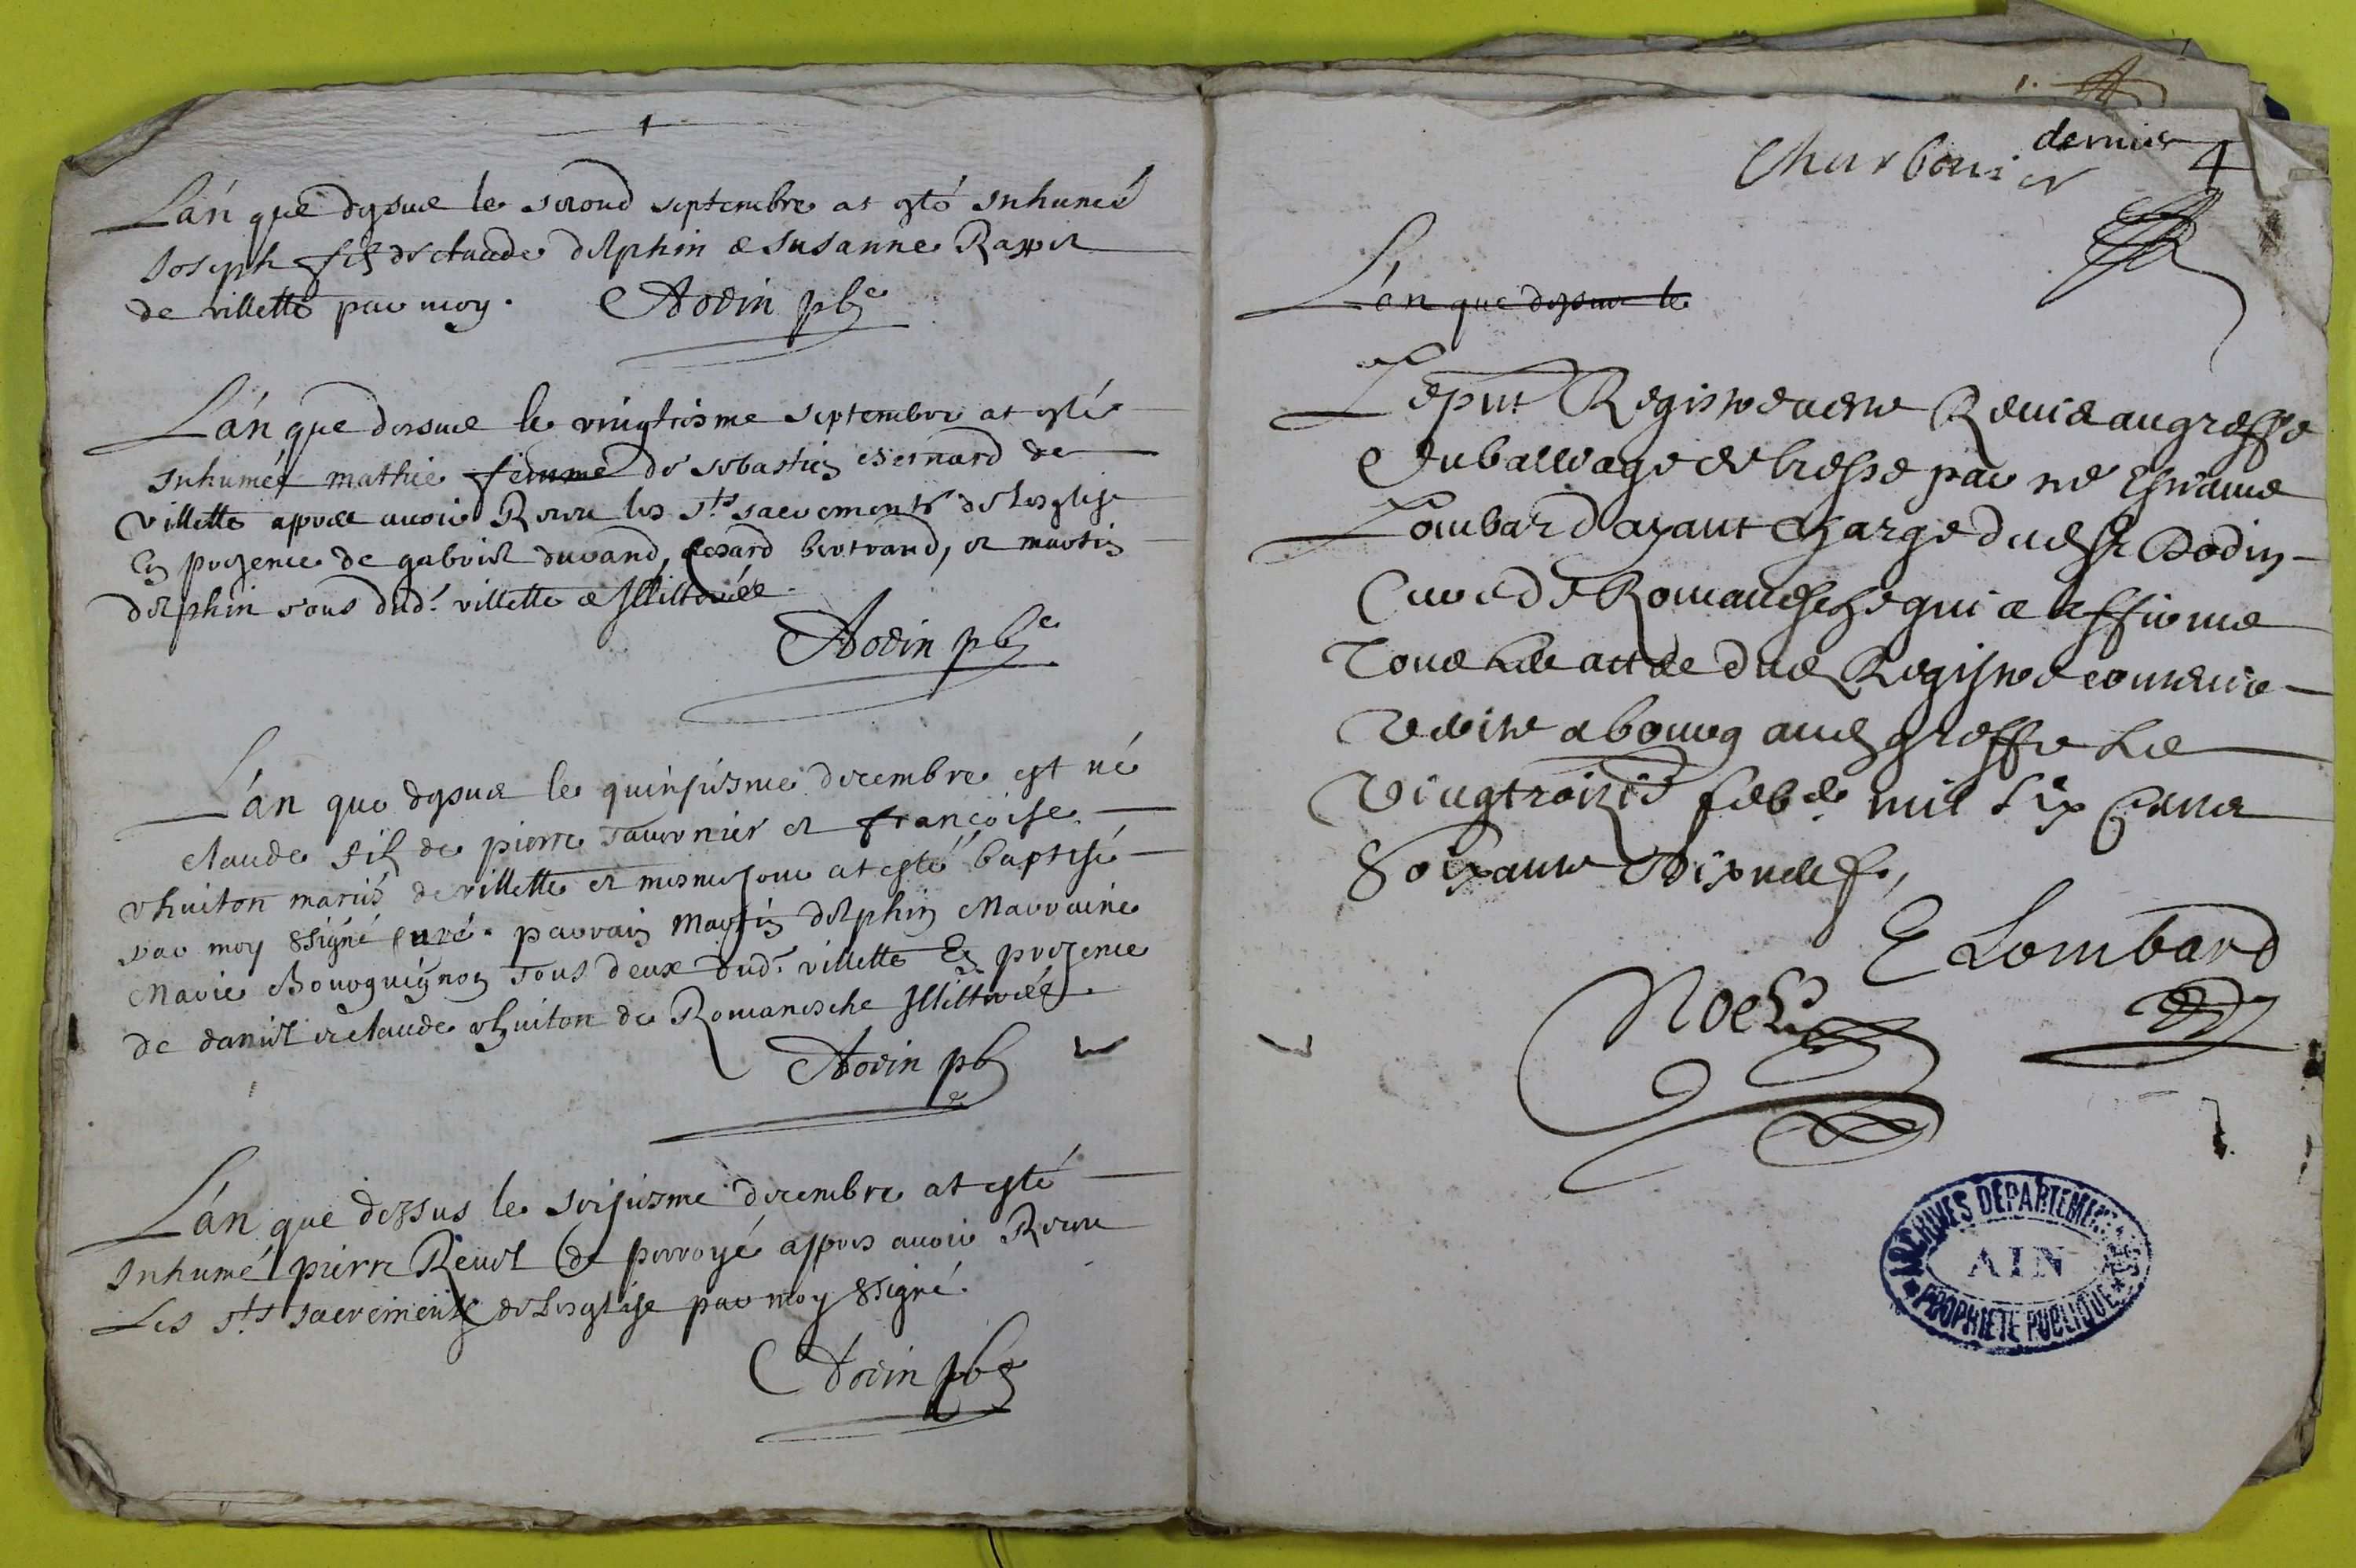 L'an que dessus le second septembre at esté inhumé
Joseph filz de claude delphin & susanne
de villette par moy. ADodin pbre
L'an que dessus le vingtiesme septembre at esté
inhumée mathie femme de sebastien Bernard de
villette appres avoir Receu les sts sacrements de Lesglise
En presence de gabriel durand, bertrand, et martin
delphin tous dud. villette & Illitterés.
ADodin pbre
L'an que dessus le quinsiesme decembre est né
claude filz de pierre Tavernier et françoise
thuiton mariés de villette et mesme jour at esté baptisé
par moy ssigné curé. parrain Martin delphin Marraine
Marie Bourguignon Tous deux dud. villette En presence
de daniel & claude thuiton de Romanesche Illitterés.
ADodin pbre
L'an que dessus le seisiesme decembre at esté
inhumé pierre Revel de perroyé appres avoir Receu
Les sts sacrements de Lesglise par moy ssigné.
ADodin pbre
dernier
Charbonier 4
L'an que dessus le
Le pnt Registre a este Remis au greffe
Du balliage de bresse par me Estienne
Lombard ayant charge dud Sr Dodin
Curé de Romanesche qui a affirmé
Tous Les actes dud Registre contenir
Verité a bourg aud greffe Le
Vingtroizie feb. mil six Cents
Soixante Dix neuf,
E Lombard
Noel
ARCHIVES DEPARTEMENTALES
AIN
PROPRIETE PUBLIQUE